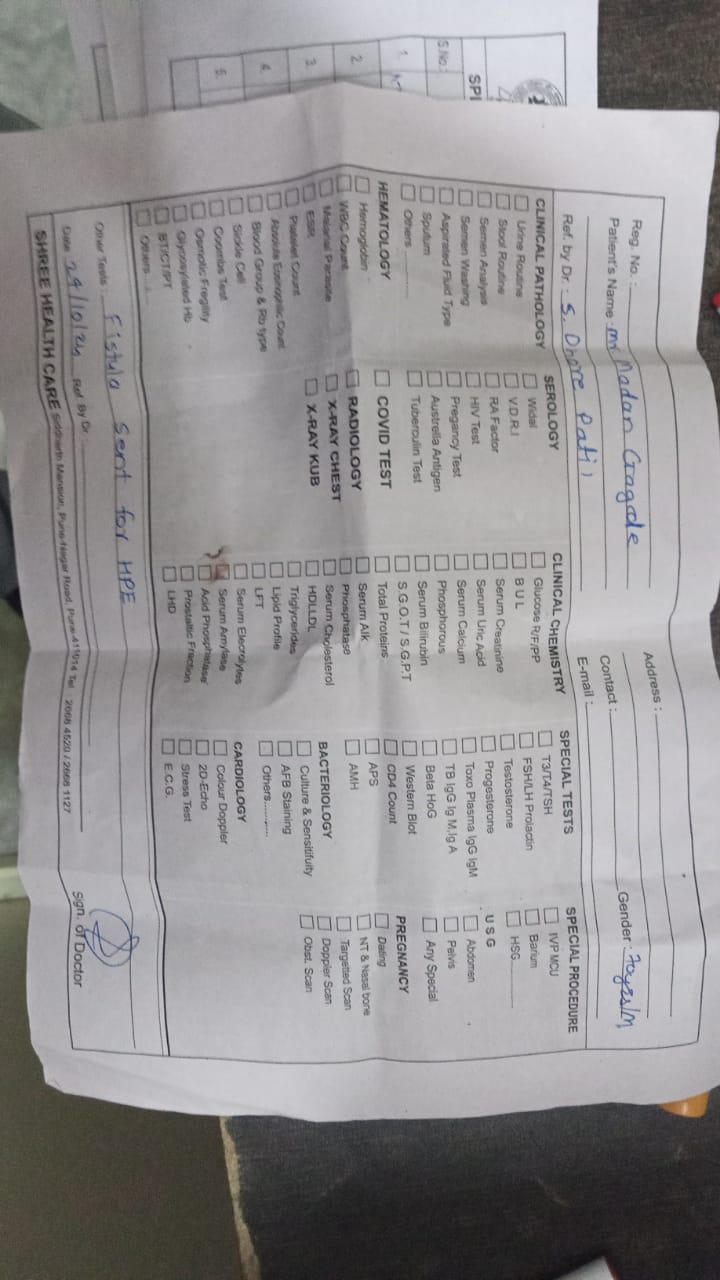 SPI
S.No.
1.
2.
3.
4.
5.
Reg. No. :
Patient's Name : mr Madan Gragade
Ref. by Dr. : S. Dhore Patil
Address :
Contact :
E-mail :
Gender :
CLINICAL PATHOLOGY
Urine Routine
Stool Routine
Semen Analysis
Semen Washing
Aspirated Fluid Type
Sputum
Others
HEMATOLOGY
Hemoglobin
WBC Count
Malarial Parasite
ESR
Platelet Count
Absolute Eosnophilic Count
Blood Group & Rb type
Sickle Cell
Coombs Test
Osmotic Fregility
Glycosylated Hb
BT/CT/PT
Others
SEROLOGY
Widal
V.D.R.I
RA Factor
HIV Test
Pregancy Test
Austrella Antigen
Tuberculin Test
COVID TEST
RADIOLOGY
X-RAY CHEST
X-RAY KUB
CLINICAL CHEMISTRY
Glucose R/F/PP
B U L
Serum Creatinine
Serum Uric Acid
Serum Calcium
Phosphorous
Serum Bilirubin
S.G.O.T / S.G.P.T
Total Proteins
Serum Alk.
Phosphatase
Serum Cholesterol
HDLLDL
Triglycerides
Lipid Profile
LFT
Serum Elecrolytes
Serum Amylase
Acid Phosphatase
Prostaltic Fraction
LHD
SPECIAL TESTS
T3/TA/TSH
FSH/LH Prolactin
Testosterone
Progesterone
Toxo Plasma IgG IgM
TB IgG Ig M,Ig A
Beta HoG
Western Blot
CD4 Count
APS
AMH
BACTERIOLOGY
Culture & Sensitifuity
AFB Staining
Others..........
CARDIOLOGY
Colour Doppler
2D-Echo
Stress Test
E.C.G.
SPECIAL PROCEDURE
IVP MCU
Barium
HSG
U S G
Abdomen
Pelvis
Any Special
PREGNANCY
Dating
NT & Nasal bone
Targetted Scan
Doppler Scan
Obst. Scan
Other Tests : Fistula sent for HPE
Date : 24/10/24 Ref. By Dr.
Sign. of Doctor
SHREE HEALTH CARE Siddharth Mansion, Pune-Nagar Road, Pune-411014 Tel : 2668 4520 / 2668 1127